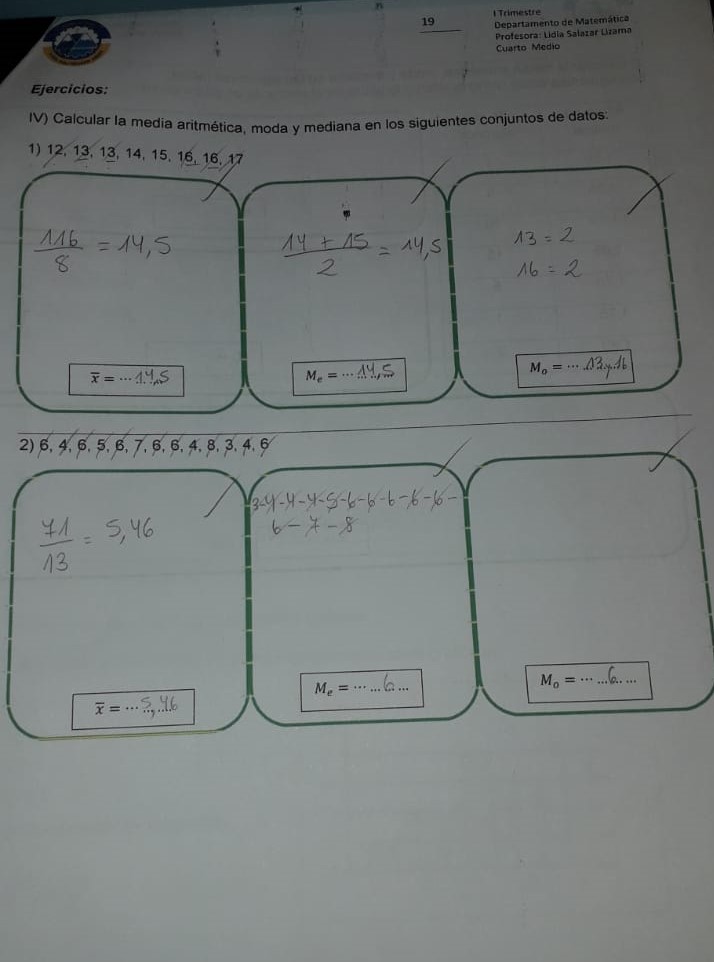 19
I Trimestre
Departamento de Matemática
Profesora: Lidia Salazar Lizama
Cuarto Medio
Ejercicios:
IV) Calcular la media aritmética, moda y mediana en los siguientes conjuntos de datos:
1) 12, 13, 13, 14, 15, 16, 16, 17
116/8 = 14,5
x̅ = ... 14,5
14 + 15/2 = 14,5
Me = ... 14,5
13 = 2
16 = 2
Mo = ... 13 y 16
2) 6, 4, 6, 5, 6, 7, 6, 6, 4, 8, 3, 4, 6
71/13 = 5,46
x̅ = ... 5,46
3-4-4-4-5-6-6-6-6-6-
6-7-8
Me = ... ...6...
Mo = ... ...6.. ...